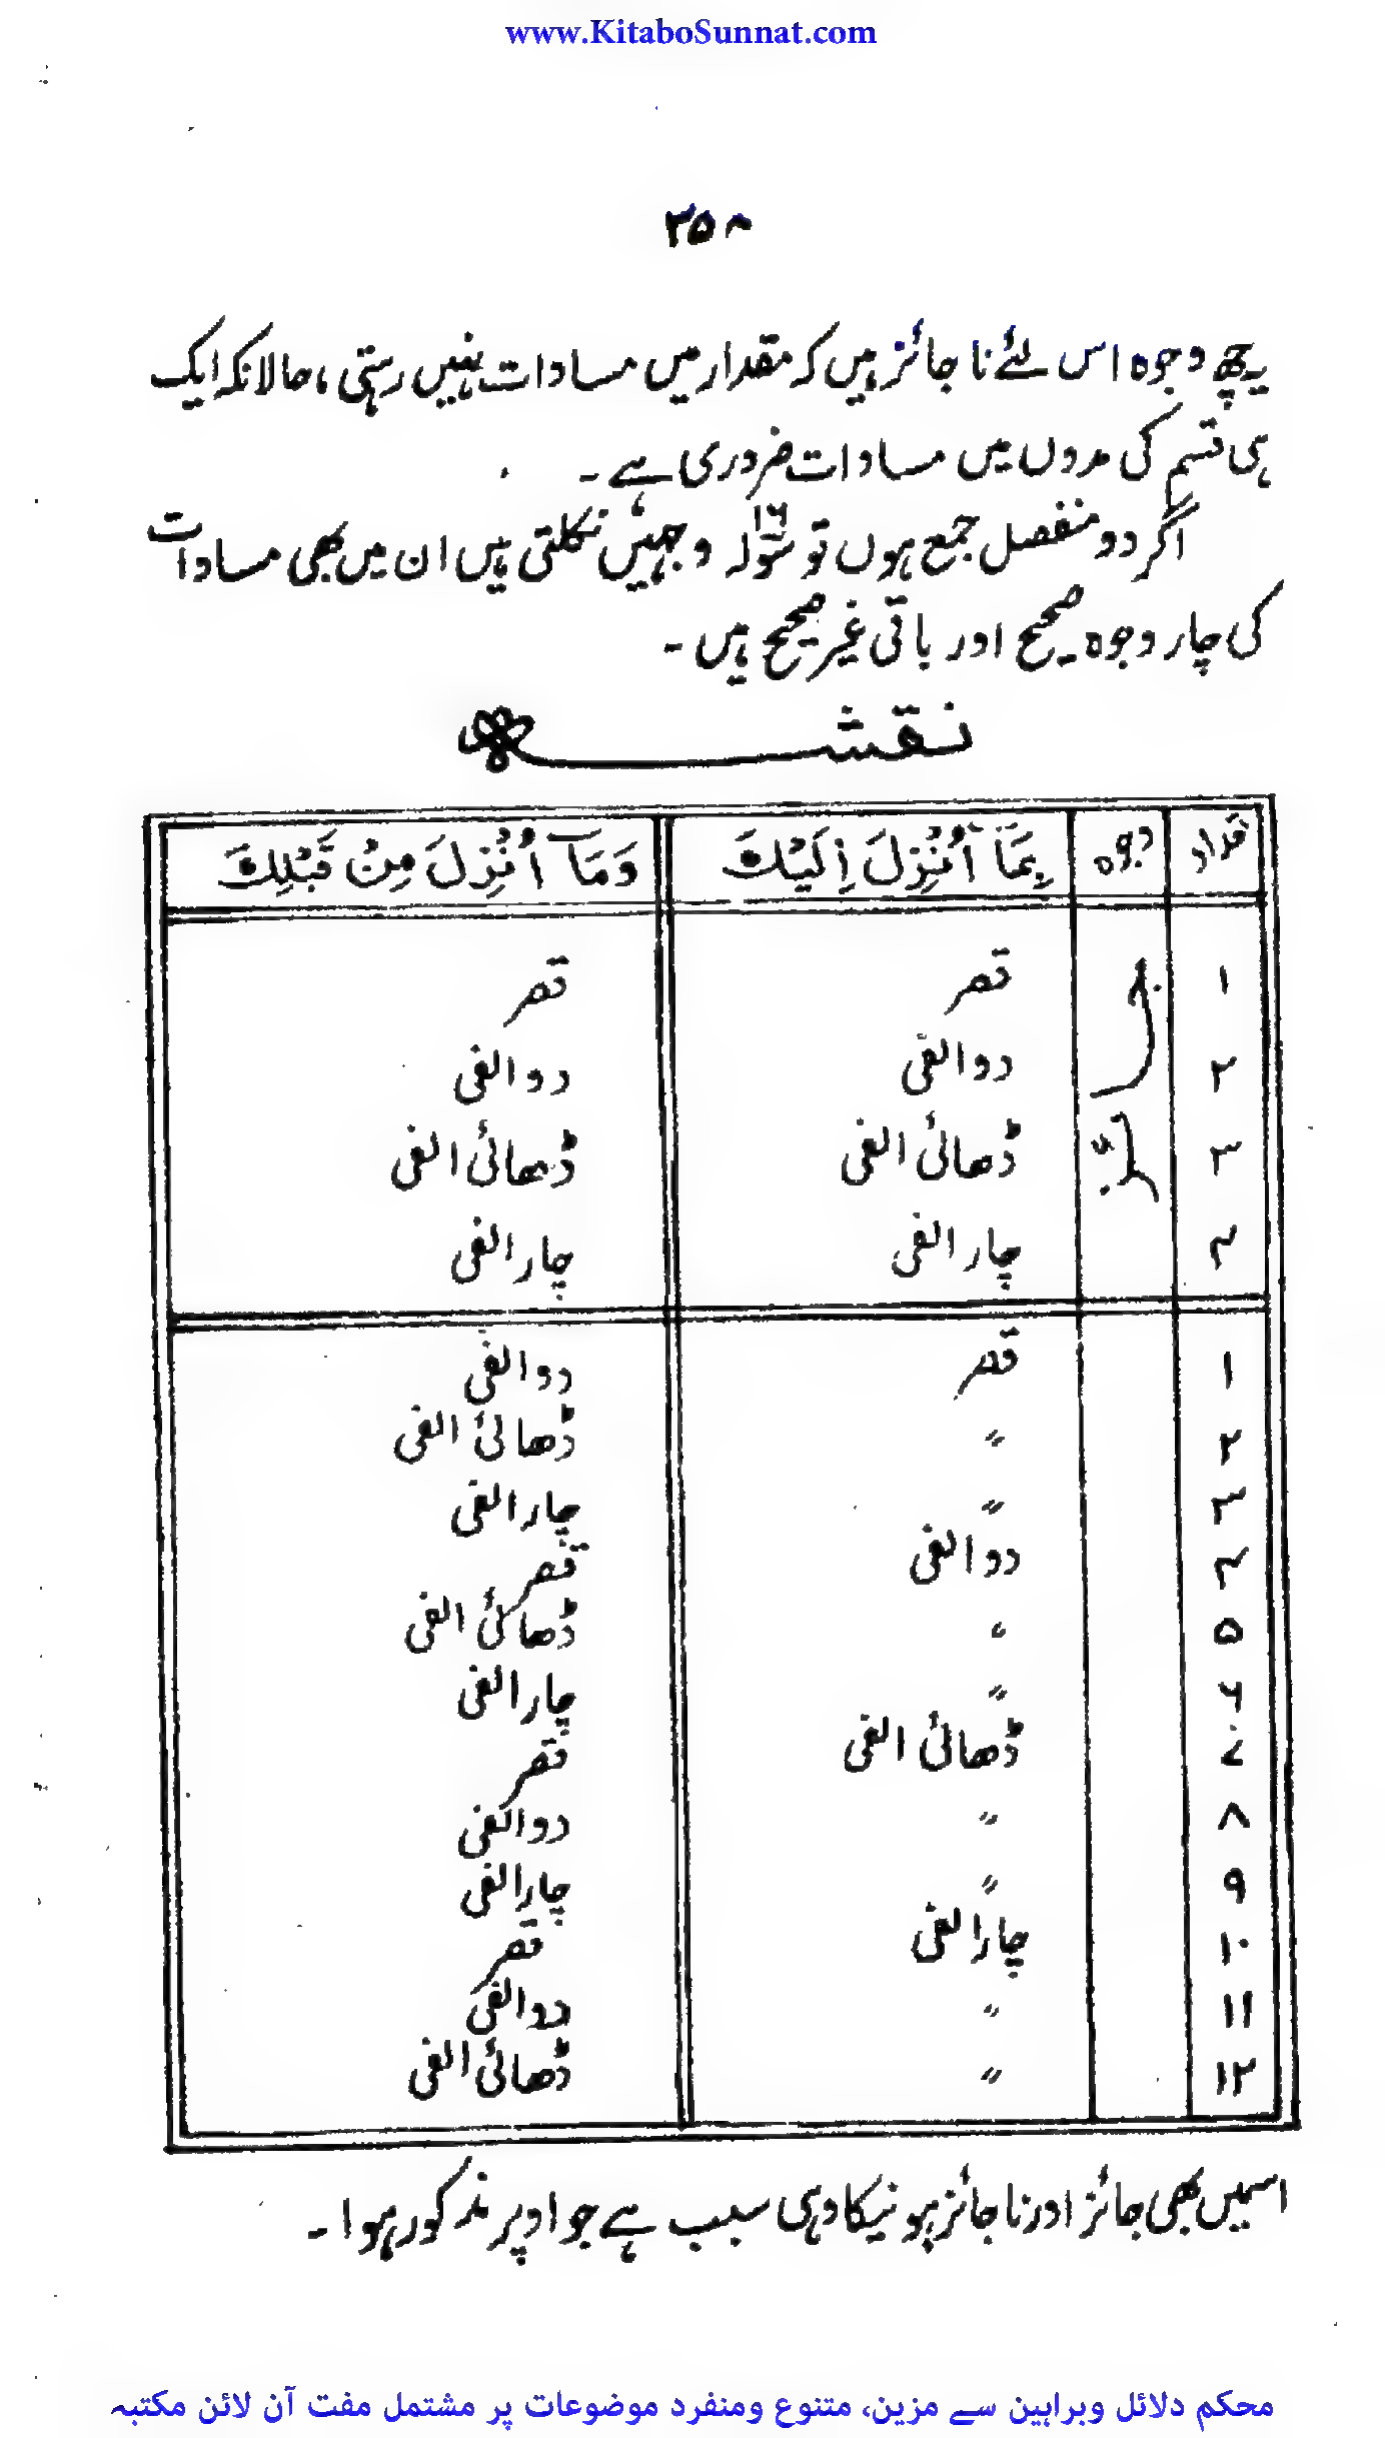 www.KitaboSunnat.com
۳۵۸
یہ چھ وجوہ اس لئے ناجائز ہیں کہ مقدار میں مساوات نہیں رہتی، حالانکہ ایک
ہی قسم کی مدوں میں مساوات ضروری ہے۔
اگر دو منفصل جمع ہوں تو سولہ ۱۶ وجہیں نکلتی ہیں ان میں بھی مساوات
کی چار وجوہ صحیح اور باقی غیر صحیح ہیں۔
نقشہ
تعداد وجوہ بِمَآ اُنْزِلَ اِلَيْكَ وَمَآ اُنْزِلَ مِنْ قَبْلِكَ
۱ قصر قصر
۲ دو الفی دو الفی
۳ ڈھائی الفی ڈھائی الفی
۴ چار الفی چار الفی
۱ قصر دو الفی
۲ " ڈھائی الفی
۳ " چار الفی
۴ دو الفی قصر
۵ " ڈھائی الفی
۶ " چار الفی
۷ ڈھائی الفی قصر
۸ " دو الفی
۹ " چار الفی
۱۰ چار الفی قصر
۱۱ " دو الفی
۱۲ " ڈھائی الفی
اسمیں بھی جائز اور ناجائز ہونیکا وہی سبب ہے جو اوپر مذکور ہوا۔
محکم دلائل وبراہین سے مزین، متنوع ومنفرد موضوعات پر مشتمل مفت آن لائن مکتبہ